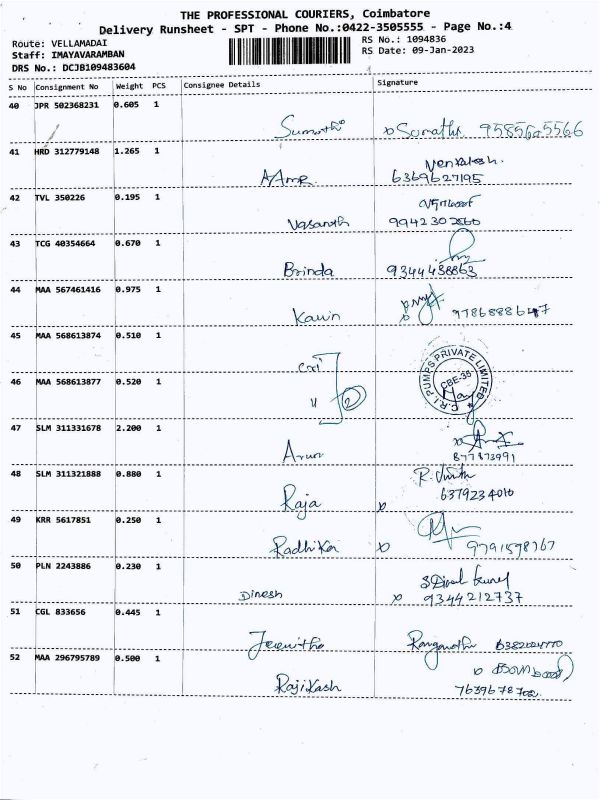 THE PROFESSIONAL COURIERS, Coimbatore
Delivery Runsheet - SPT - Phone No.:0422-3505555 - Page No.:4
Route: VELLAMADAI
RS No.: 1094836
Staff: IMAYAVARAMBAN
RS Date: 09-Jan-2023
DRS No.: DCJB109483604
S No Consignment No Weight PCS Consignee Details Signature
40 JPR 502368231 0.605 1
Sumathi
41 HRD 312779148 1.265 1
Venkatesh.
6369627195
42 TVL 350226 0.195 1
Vasanth
43 TCG 40354664 0.670 1
Brinda 9344438863
44 MAA 567461416 0.975 1
Kavin
45 MAA 568613874 0.510 1
C.R.I. PUMPS PRIVATE LIMITED
CBE-35
46 MAA 568613877 0.520 1
47 SLM 311331678 2.200 1
Arun 877873991
48 SLM 311321888 0.880 1
Raja 6379234010
49 KRR 5617851 0.250 1
Radhika
50 PLN 2243886 0.230 1
Dinesh 9344212737
51 CGL 833656 0.445 1
Jeevitha
52 MAA 296795789 0.500 1